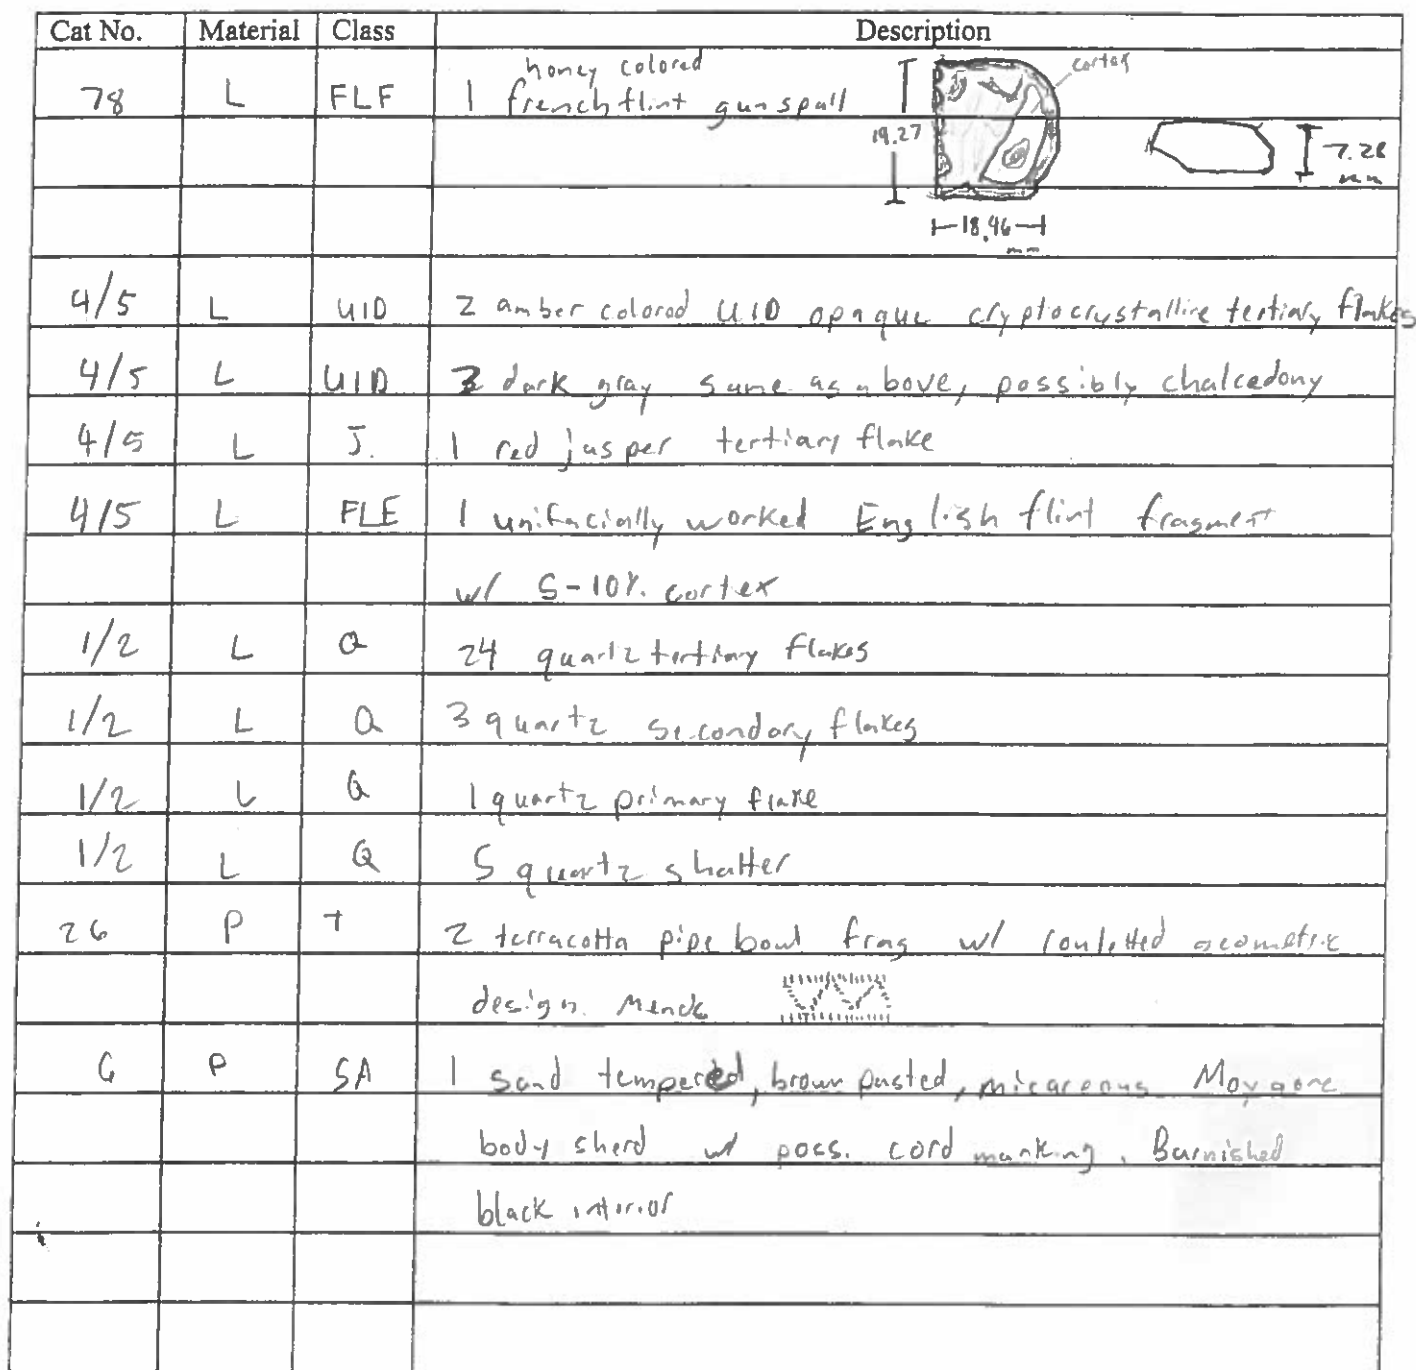 Cat No. Material Class Description
78 L FLF 1 honey colored french flint gunspall cortex
19.27
7.28 mm
18.96 mm
4/5 L UID 2 amber colored UID opaque cryptocrystalline tertiary flakes
4/5 L UID dark gray same as above, possibly chalcedony
4/5 L J. 1 red jasper tertiary flake
4/5 L FLE 1 unifacially worked English flint fragment
w/ 5-10% cortex
1/2 L Q 24 quartz tertiary flakes
1/2 L Q 3 quartz secondary flakes
1/2 L Q 1 quartz primary flake
1/2 L Q 5 quartz shatter
26 P T 2 terracotta pipe bowl frag w/ rouletted geometric
design. Mends
6 P SA 1 sand tempered, brown pasted, micareous Moyaone
body sherd w/ poss. cord marking. Burnished
black interior